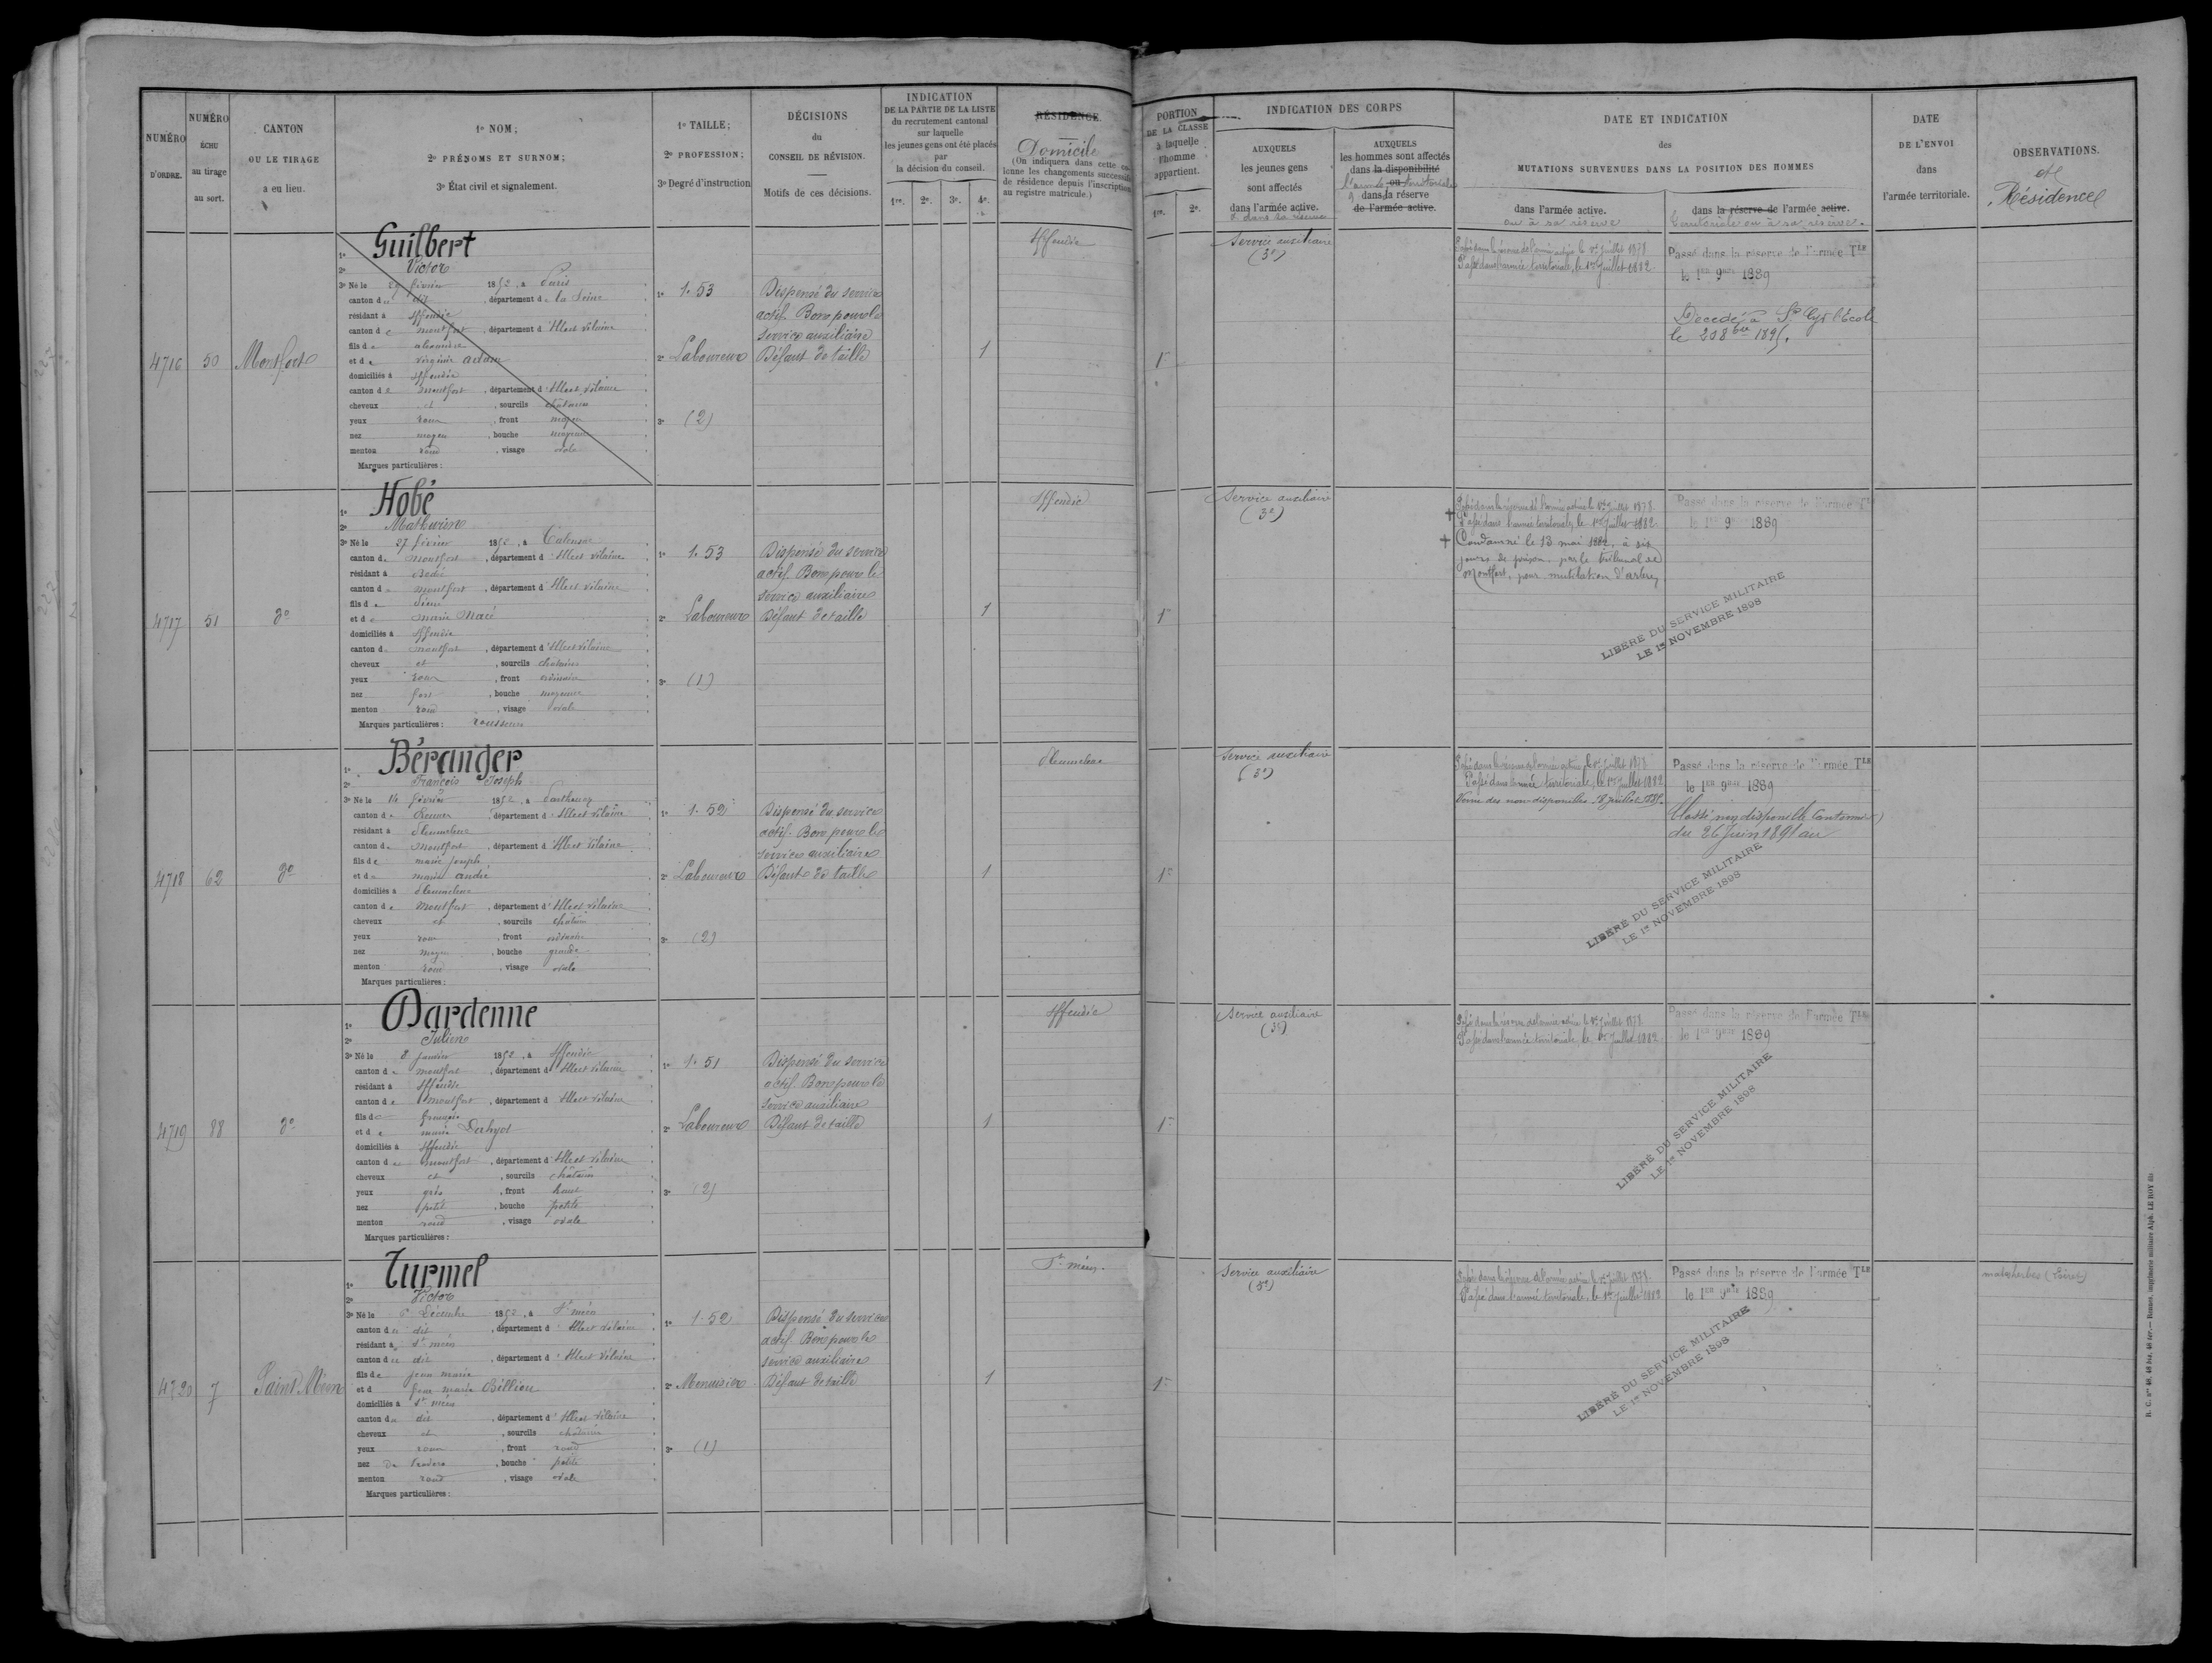 NUMÉRO D'ORDRE.
NUMÉRO ÉCHU au tirage au sort.
CANTON OU LE TIRAGE a eu lieu.
1º NOM;
2º PRÉNOMS ET SURNOM;
3º État civil et signalement.
1º TAILLE;
2º PROFESSION;
3º Degré d'instruction
DÉCISIONS du CONSEIL DE RÉVISION.
Motifs de ces décisions.
INDICATION
DE LA PARTIE DE LA LISTE
du recrutement cantonal
sur laquelle
les jeunes gens ont été placés
par
la décision du conseil.
1re. 2e. 3e. 4e.
RÉSIDENCE.
Domicile
(On indiquera dans cette
lonne les changements
de résidence depuis l'inscription
au registre matricule.)
PORTION
DE LA CLASSE
à laquelle
l'homme
appartient.
1re. 2e.
INDICATION DES CORPS
AUXQUELS
les jeunes gens
sont affectés
dans l'armée active.
AUXQUELS
les hommes sont affectés
dans la disponibilité
ou
l'armée territoriale
dans la réserve
de l'armée active.
DATE ET INDICATION
des
MUTATIONS SURVENUES DANS LA POSITION DES HOMMES
dans l'armée active.
ou à sa réserve
dans la réserve de l'armée active.
territoriale ou à sa réserve.
DATE
DE L'ENVOI
dans
l'armée territoriale.
OBSERVATIONS.
et
Résidence
4716
50
Montfort
1º Guilbert
2º Victor
3º Né le février 1852, à Paris
canton du dit, département de la Seine
résidant à Iffendic
canton de Montfort, département d'Ille et Vilaine
fils de
et de Virginie Adam
domiciliés à Iffendic
canton de Montfort, département d'Ille et Vilaine
cheveux et, sourcils châtains
yeux roux, front moyen
nez moyen, bouche moyenne
menton rond, visage ovale
Marques particulières:
1º 1.53
2º Laboureur
3º (2)
Dispensé du service
actif. Bon pour le
service auxiliaire
Défaut de taille
1
Iffendic
1re
Service auxiliaire
(3e)
Passé dans la réserve de l'armée active le 1er Juillet 1878
Passé dans l'armée territoriale, le 1er Juillet 1882
Passé dans la réserve de l'armée TLE
le 1ER 9BRE 1889
Décédé à St Cyr l'École
le 20 8bre 1895.
4717
51
do
1º Hobé
2º Mathurin
3º Né le 27 février 1852, à Talensac
canton de Montfort, département d'Ille et Vilaine
résidant à Bédée
canton de Montfort, département d'Ille et Vilaine
fils de Pierre
et de Marie Macé
domiciliés à Iffendic
canton de Montfort, département d'Ille et Vilaine
cheveux et, sourcils châtains
yeux roux, front ordinaire
nez fort, bouche moyenne
menton rond, visage ovale
Marques particulières: rousseurs
1º 1.53
2º Laboureur
3º (1)
Dispensé du service
actif. Bon pour le
service auxiliaire
Défaut de taille
1
Iffendic
1re
Service auxiliaire
(3e)
Passé dans la réserve de l'armée active le 1er Juillet 1878
Passé dans l'armée territoriale, le 1er Juillet 1882
Condamné le 13 mai 1882, à six
jours de prison, par le tribunal de
Montfort, pour mutilation d'arbres
Passé dans la réserve de l'armée TLE
le 1ER 9 1889
LIBÉRÉ DU SERVICE MILITAIRE
LE 1er NOVEMBRE 1898
4718
62
do
1º Béranger
2º François Joseph
3º Né le 14 février 1852, à Parthenay
canton de Rennes, département d'Ille et Vilaine
résidant à Pleumeleuc
canton de Montfort, département d'Ille et Vilaine
fils de Marie Joseph
et de Marie André
domiciliés à Pleumeleuc
canton de Montfort, département d'Ille et Vilaine
cheveux et, sourcils châtains
yeux roux, front ordinaire
nez moyen, bouche grande
menton rond, visage ovale
Marques particulières:
1º 1.52
2º Laboureur
3º (2)
Dispensé du service
actif. Bon pour le
service auxiliaire
Défaut de taille
1
Pleumeleuc
1re
Service auxiliaire
(3e)
Passé dans la réserve de l'armée active le 1er Juillet 1878
Passé dans l'armée territoriale, le 1er Juillet 1882
des non-disponibles, 18 juillet
Passé dans la réserve de l'armée TLE
le 1ER 9BRE 1889
Classé non disponible Cantonnier
du 26 Juin 1891 au
LIBÉRÉ DU SERVICE MILITAIRE
LE 1er NOVEMBRE 1898
4719
88
do
1º Dardenne
2º Julien
3º Né le 8 janvier 1852, à Iffendic
canton de Montfort, département d'Ille et Vilaine
résidant à Iffendic
canton de Montfort, département d'Ille et Vilaine
fils de François
et de Marie
domiciliés à Iffendic
canton de Montfort, département d'Ille et Vilaine
cheveux et, sourcils châtains
yeux gris, front haut
nez petit, bouche petite
menton rond, visage ovale
Marques particulières:
1º 1.51
2º Laboureur
3º (2)
Dispensé du service
actif. Bon pour le
service auxiliaire
Défaut de taille
1
Iffendic
1re
Service auxiliaire
(3e)
Passé dans la réserve de l'armée active le 1er Juillet 1878
Passé dans l'armée territoriale, le 1er Juillet 1882
Passé dans la réserve de l'armée TLE
le 1ER 9BRE 1889
LIBÉRÉ DU SERVICE MILITAIRE
LE 1er NOVEMBRE 1898
4720
7
Saint Méen
1º Turmel
2º Victor
3º Né le 6 Décembre 1852, à St méen
canton du dit, département d'Ille et Vilaine
résidant à St méen
canton du dit, département d'Ille et Vilaine
fils de jean marie
et d marie Bellieu
domiciliés à St méen
canton du dit, département d'Ille et Vilaine
cheveux et, sourcils châtains
yeux roux, front rond
nez, bouche petite
menton rond, visage ovale
Marques particulières:
1º 1.52
2º Menuisier
3º (1)
Dispensé du service
actif. Bon pour le
service auxiliaire
Défaut de taille
1
St méen.
1re
Service auxiliaire
(3e)
Passé dans la réserve de l'armée active le 1er Juillet 1878
Passé dans l'armée territoriale, le 1er Juillet 1882
Passé dans la réserve de l'armée TLE
le 1ER 9BRE 1889
LIBÉRÉ DU SERVICE MILITAIRE
LE 1er NOVEMBRE 1898
malesherbes (Loiret)
R. C. nos 48, 48 bis, 48 ter.— Rennes, imprimerie militaire Alph. LE ROY fils